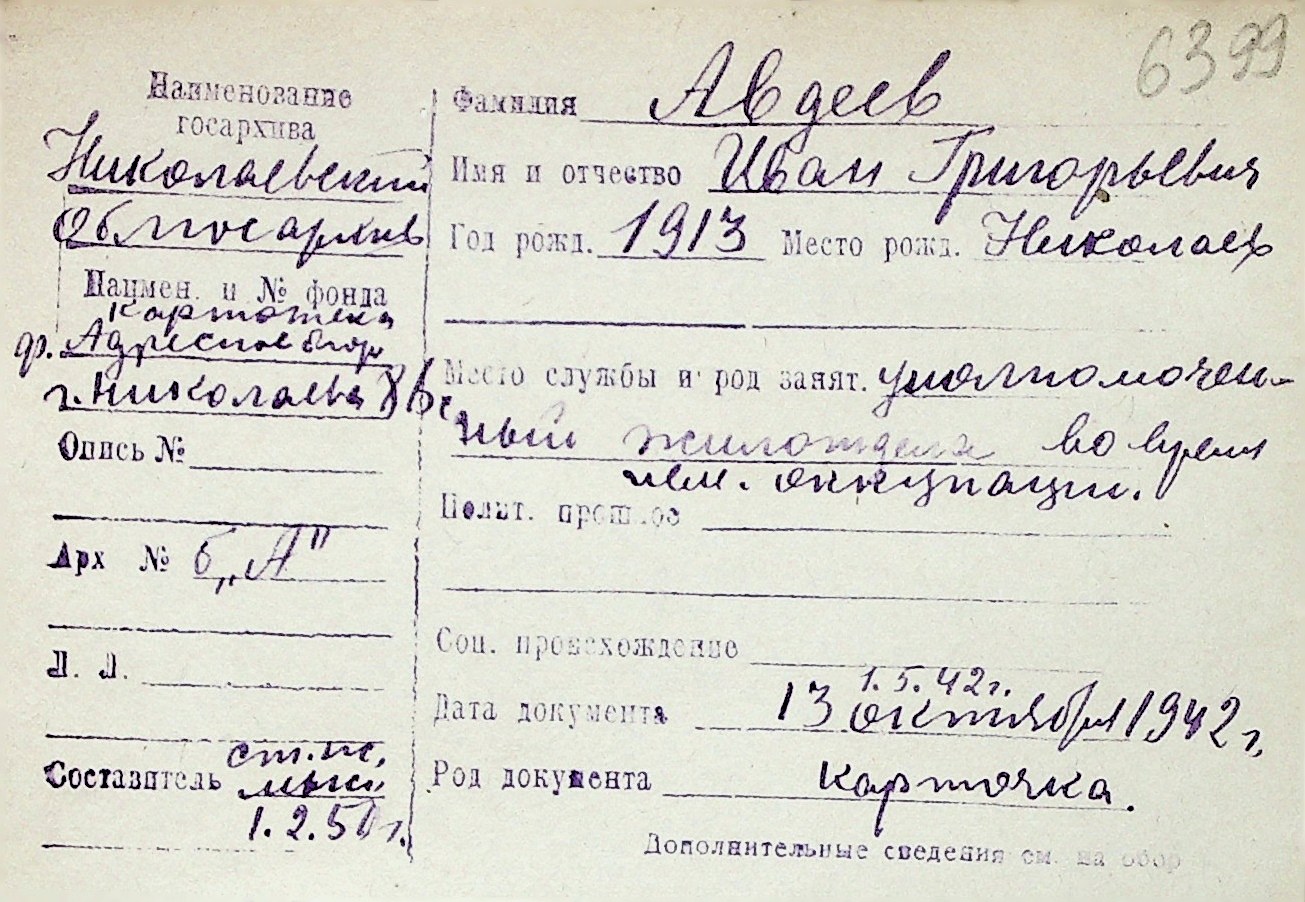 6399
Наименование
госархива
Николаевский
Облгосархив
Наимен. и № фонда
картотека
ф. Адресное бюро
г. Николаева
Опись №
Арх № б „А"
Л. Л.
Составитель
1.2.50 г.
Фамилия Авдеев
Имя и отчество Иван Григорьевич
Год рожд. 1913 Место рожд. Николаев
Место службы и род занят. уполномочен-
ный жилотдела во время
нем. оккупации.
Полит. прошлое
Соц. происхождение
1.5.42г.
Дата документа 13 октября 1942 г.
Род документа карточка.
Дополнительные сведения см. на обор